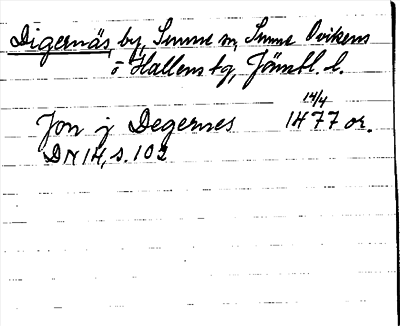 Digernäs, by, Sunne sn, Sunne Ovikens
o Hallens tg, Jämtl. l.
14/4
Jon j Degernes 1477 or.
DN 14, s. 102